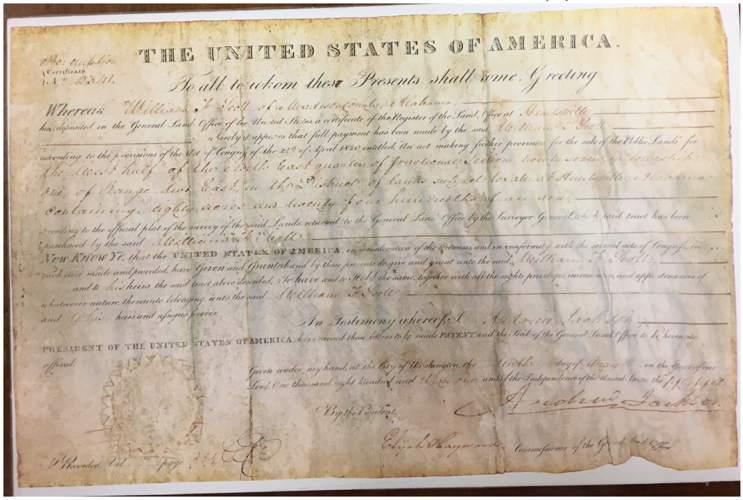 THE UNITED STATES OF AMERICA.
Certificate
To all to whom these Presents shall come, Greeting
Whereas William F. Scott of Madison County Alabama
has deposited in the General Land Office of the United States, a certificate of the Register of the Land Office at Huntsville
whereby it appears that full payment has been made by the said William F. Scott
according to the provisions of the Act of Congress of the 24th of April 1820 entitled An act making further provision for the sale of the Public Lands for
the West half of the East quarter of fractional Section twenty in township
one of Range two East, in the District of lands subject to sale at Huntsville Alabama
containing eighty acres and twenty four hundredths of an acre
according to the official plat of the survey of the said Lands returned to the General Land Office by the Surveyor General, which said tract has been
purchased by the said William F. Scott
NOW KNOW YE, that the UNITED STATES OF AMERICA, in consideration of the Premises, and in conformity with the several acts of Congress, in
such case made and provided, have Given and Granted and by these presents do give and grant unto the said William F. Scott
and to his heirs the said tract above described, To have and to Hold the same, together with all the rights, privileges, immunities and appurtenances of
whatsoever nature, thereunto belonging, unto the said William F. Scott
and to his heirs and assigns forever.
In Testimony whereof, I Andrew Jackson
PRESIDENT OF THE UNITED STATES OF AMERICA, have caused these letters to be made PATENT, and the Seal of the General Land Office to be hereunto
affixed.
Given under my hand, at the City of Washington, the day of in the Year of our
Lord One thousand eight hundred and thirty one and of the Independence of the United States the fifty fifth
By the President, Andrew Jackson
Elijah Hayward Commissioner of the General Land Office
Recorded, Vol page